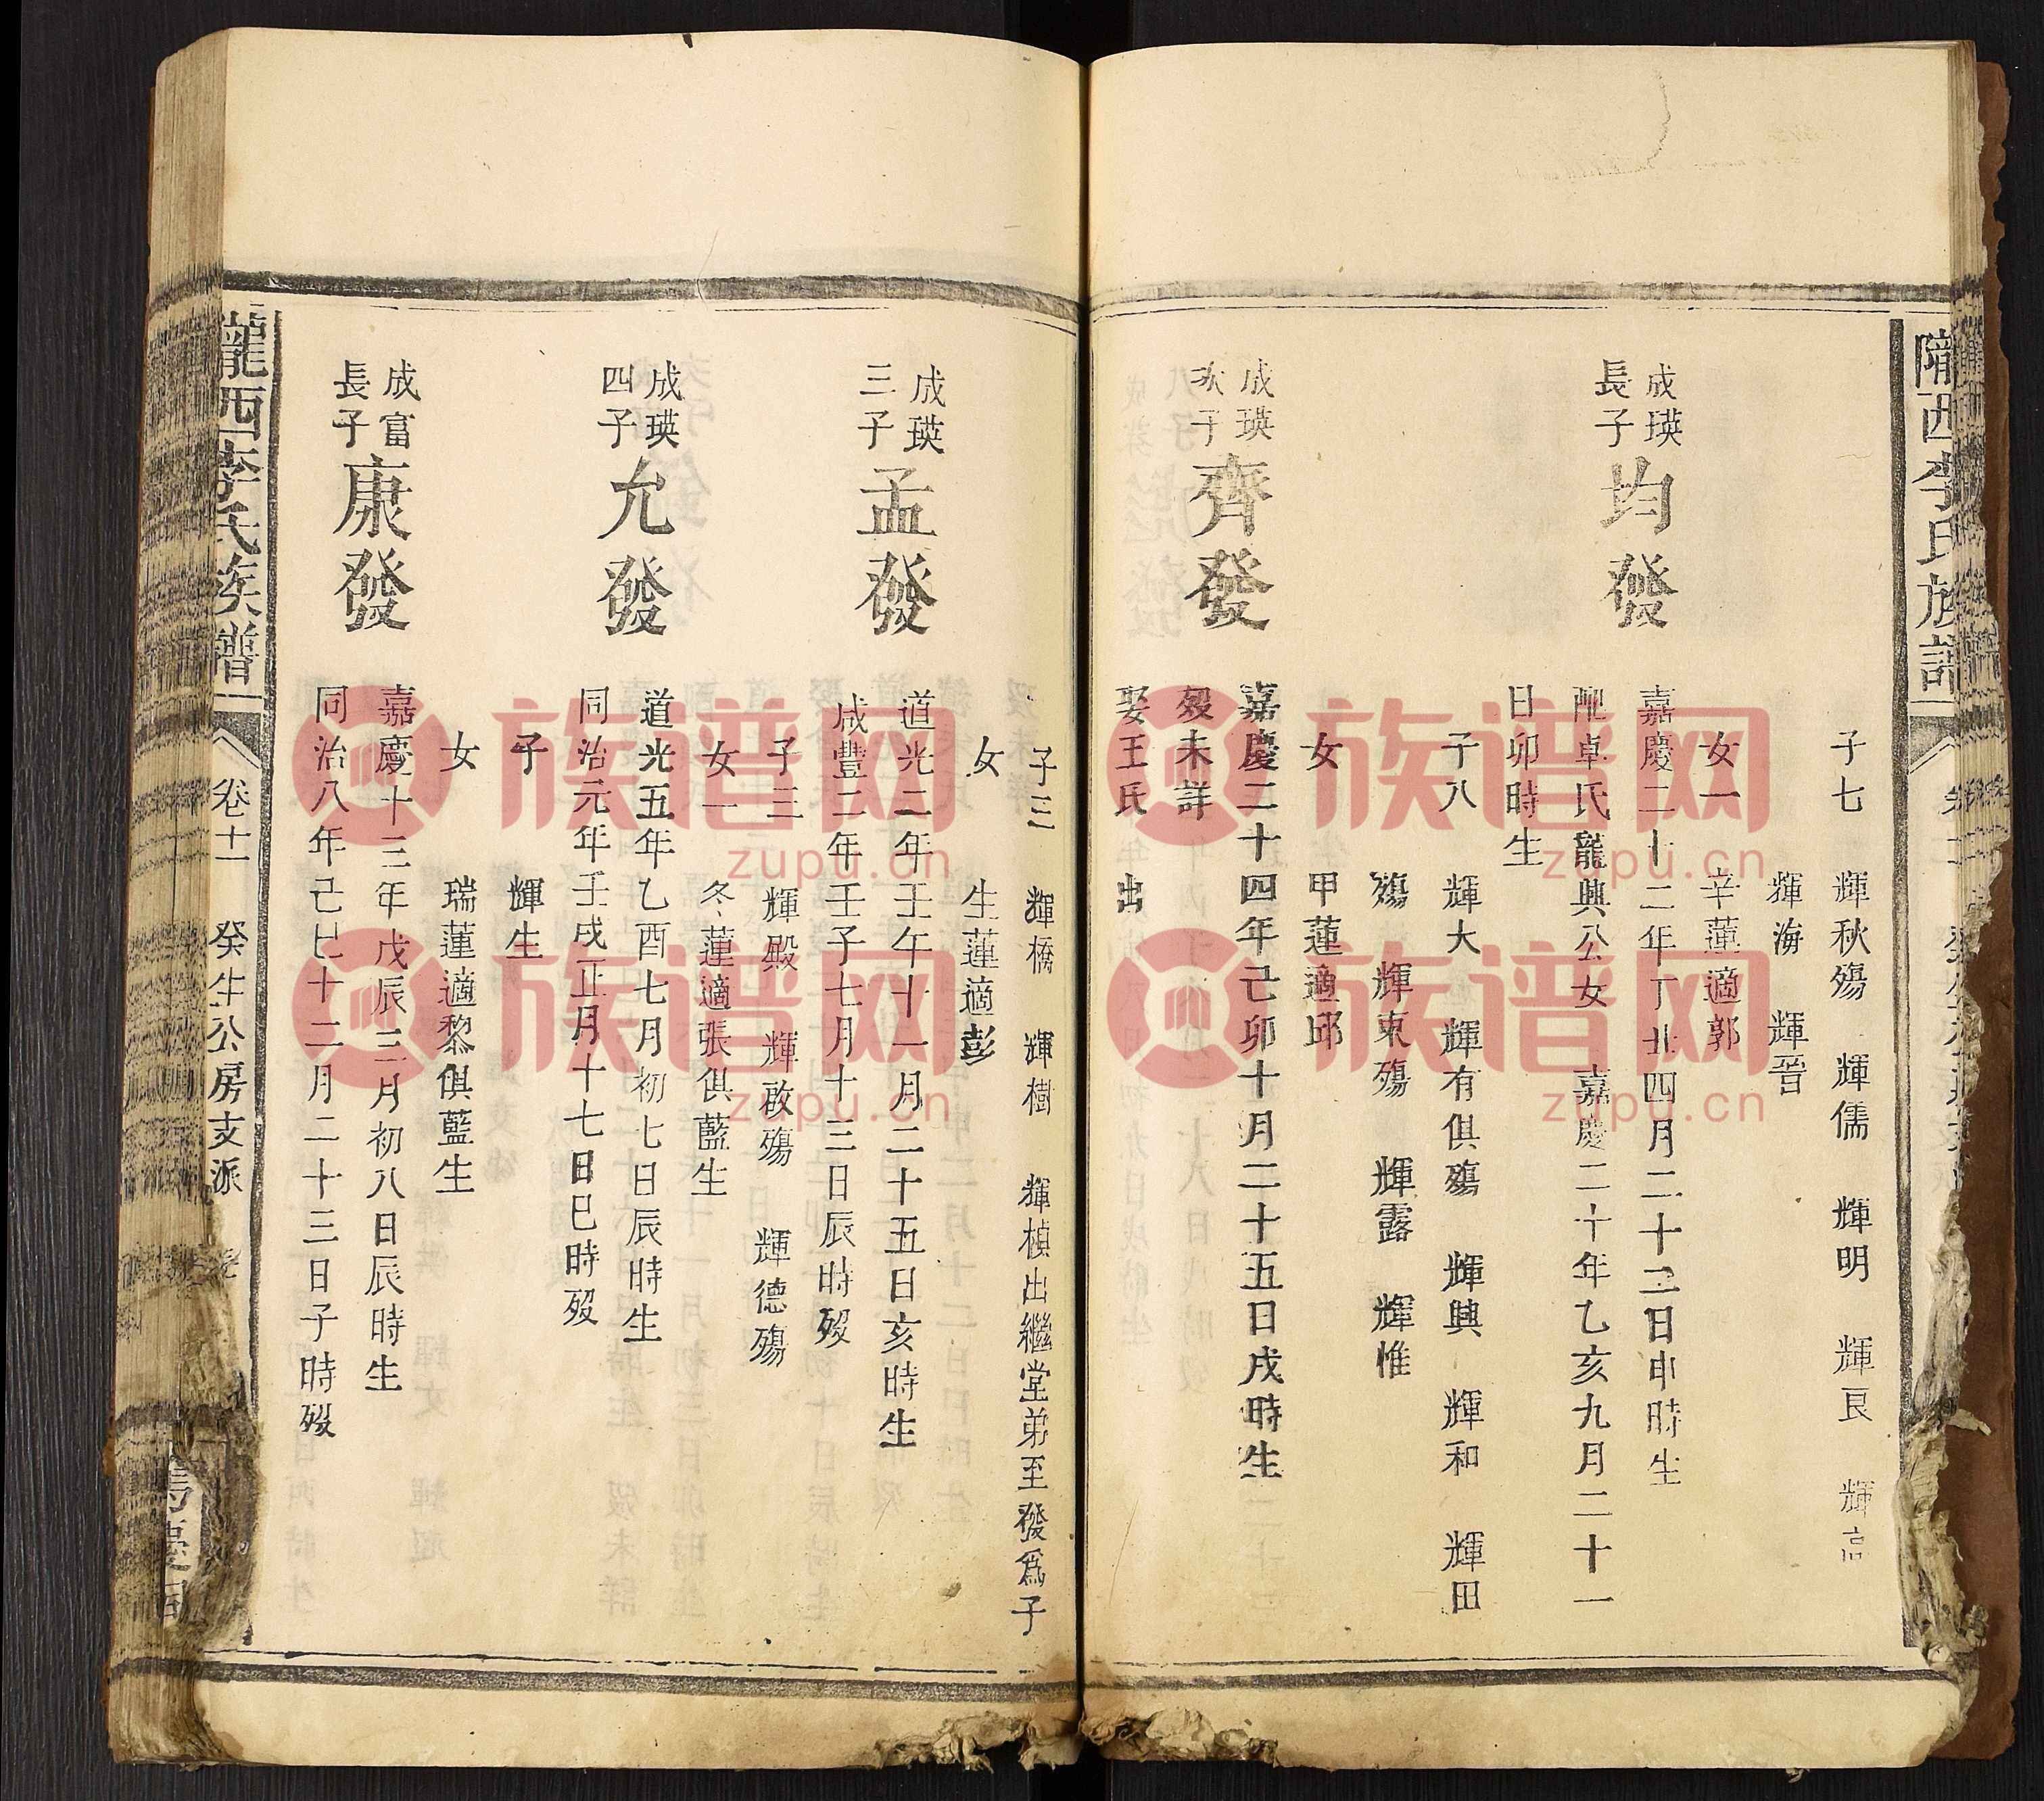 隴西李氏族譜
子七 輝秋殤 輝儒 輝明 輝艮 輝高
輝海 輝晉
女一 辛蓮適郭
成瑛
長子
均發
嘉慶二十二年丁丑四月二十三日申時生
配卓氏龍興公女 嘉慶二十年乙亥九月二十一
日卯時生
子八 輝大 輝有俱殤 輝興 輝和 輝田
殤 輝東殤 輝露 輝惟
女 甲蓮適邱
成瑛
次子
齊發
嘉慶二十四年己卯十月二十五日戌時生
歿未詳
娶王氏 出
子三 輝橋 輝樹 輝楨出繼堂弟至發爲子
女 生蓮適彭
成瑛
三子
孟發
道光二年壬午十一月二十五日亥時生
咸豐二年壬子七月十三日辰時歿
子三 輝殿 輝啟殤 輝德殤
女一 冬蓮適張俱藍生
成瑛
四子
允發
道光五年乙酉七月初七日辰時生
同治元年壬戌正月十七日巳時歿
子 輝生
女 瑞蓮適黎俱藍生
成富
長子
康發
嘉慶十三年戊辰三月初八日辰時生
同治八年己巳十二月二十三日子時歿
隴西李氏族譜
卷十一 癸生公房支派
族谱网
zupu.cn
族谱网
zupu.cn
族谱网
zupu.cn
族谱网
zupu.cn